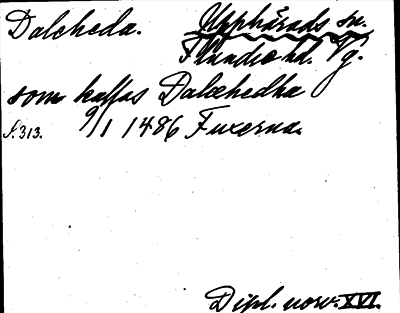 Daleheda. Upphärads sn.
Flundre hd. Vg.
som kallas Dalehedha
S. 313. 9/1 1486 Fuxerna.
Dipl. norv. XVI.